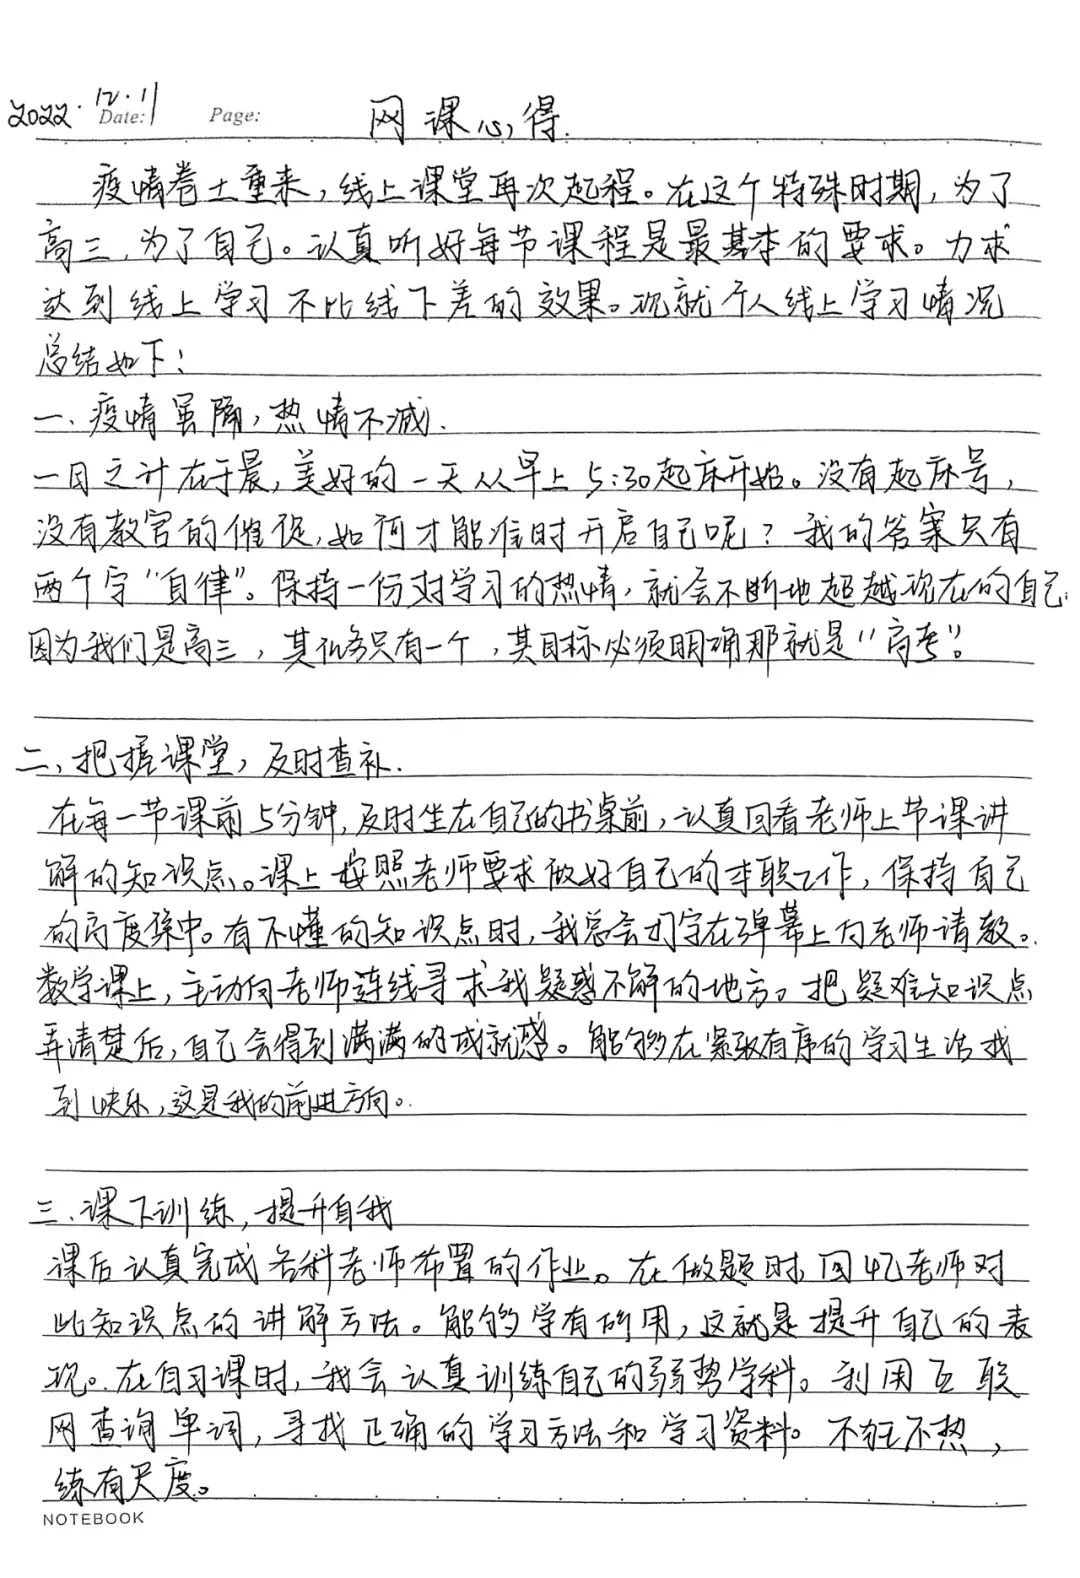 2022. 12.11 Date: Page: 网课心得.
疫情卷土重来,线上课堂再次起程。在这个特殊时期,为了
高三,为了自己。认真听好每节课程是最基本的要求。力求
达到线上学习不比线下差的效果。现就个人线上学习情况
总结如下:
一、疫情虽隔,热情不减.
一日之计在于晨,美好的一天从早上5:30起床开始。没有起床号,
没有教官的催促,如何才能准时开启自己呢?我的答案只有
两个字“自律”。保持一份对学习的热情,就会不断地超越现在的自己
因为我们是高三,其任务只有一个,其目标必须明确那就是“高考”。
二、把握课堂,及时查补.
在每一节课前5分钟,及时坐在自己的书桌前,认真回看老师上节课讲
解的知识点。课上按照老师要求做好自己的本职工作,保持自己
的高度集中。有不懂的知识点时,我总会打字在弹幕上向老师请教。
数学课上,主动向老师连线寻求我疑惑不解的地方。把疑难知识点
弄清楚后,自己会得到满满的成就感。能够在紧张有序的学习生活找
到快乐,这是我的前进方向。
三.课下训练,提升自我
课后认真完成各科老师布置的作业。在做题时,回忆老师对
此知识点的讲解方法。能够学有所用,这就是提升自己的表
现。在自习课时,我会认真训练自己的弱势学科。利用互联
网查询单词,寻找正确的学习方法和学习资料。不狂不热,
练有尺度。
NOTEBOOK